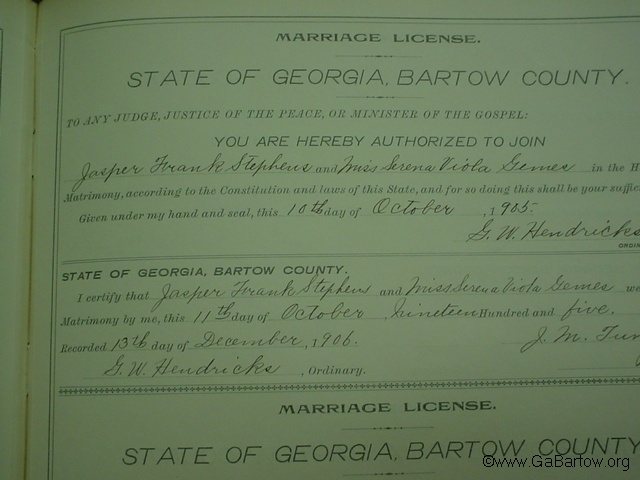 MARRIAGE LICENSE.
STATE OF GEORGIA, BARTOW COUNTY.
TO ANY JUDGE, JUSTICE OF THE PEACE, OR MINISTER OF THE GOSPEL:
YOU ARE HEREBY AUTHORIZED TO JOIN
Jasper Frank Stephens and Miss Serena Viola Gemes in the H
Matrimony, according to the Constitution and laws of this State, and for so doing this shall be your suffic
Given under my hand and seal, this 10th day of October, 1905.
G. W. Hendricks
ORDIN
STATE OF GEORGIA, BARTOW COUNTY.
I certify that Jasper Frank Stephens and Miss Serena Viola Gemes we
Matrimony by me, this 11th day of October, Nineteen Hundred and five.
Recorded 13th day of December, 1906. J. M. Tu
G. W. Hendricks, Ordinary.
MARRIAGE LICENSE.
STATE OF GEORGIA, BARTOW COUNTY
©www.GaBartow.org